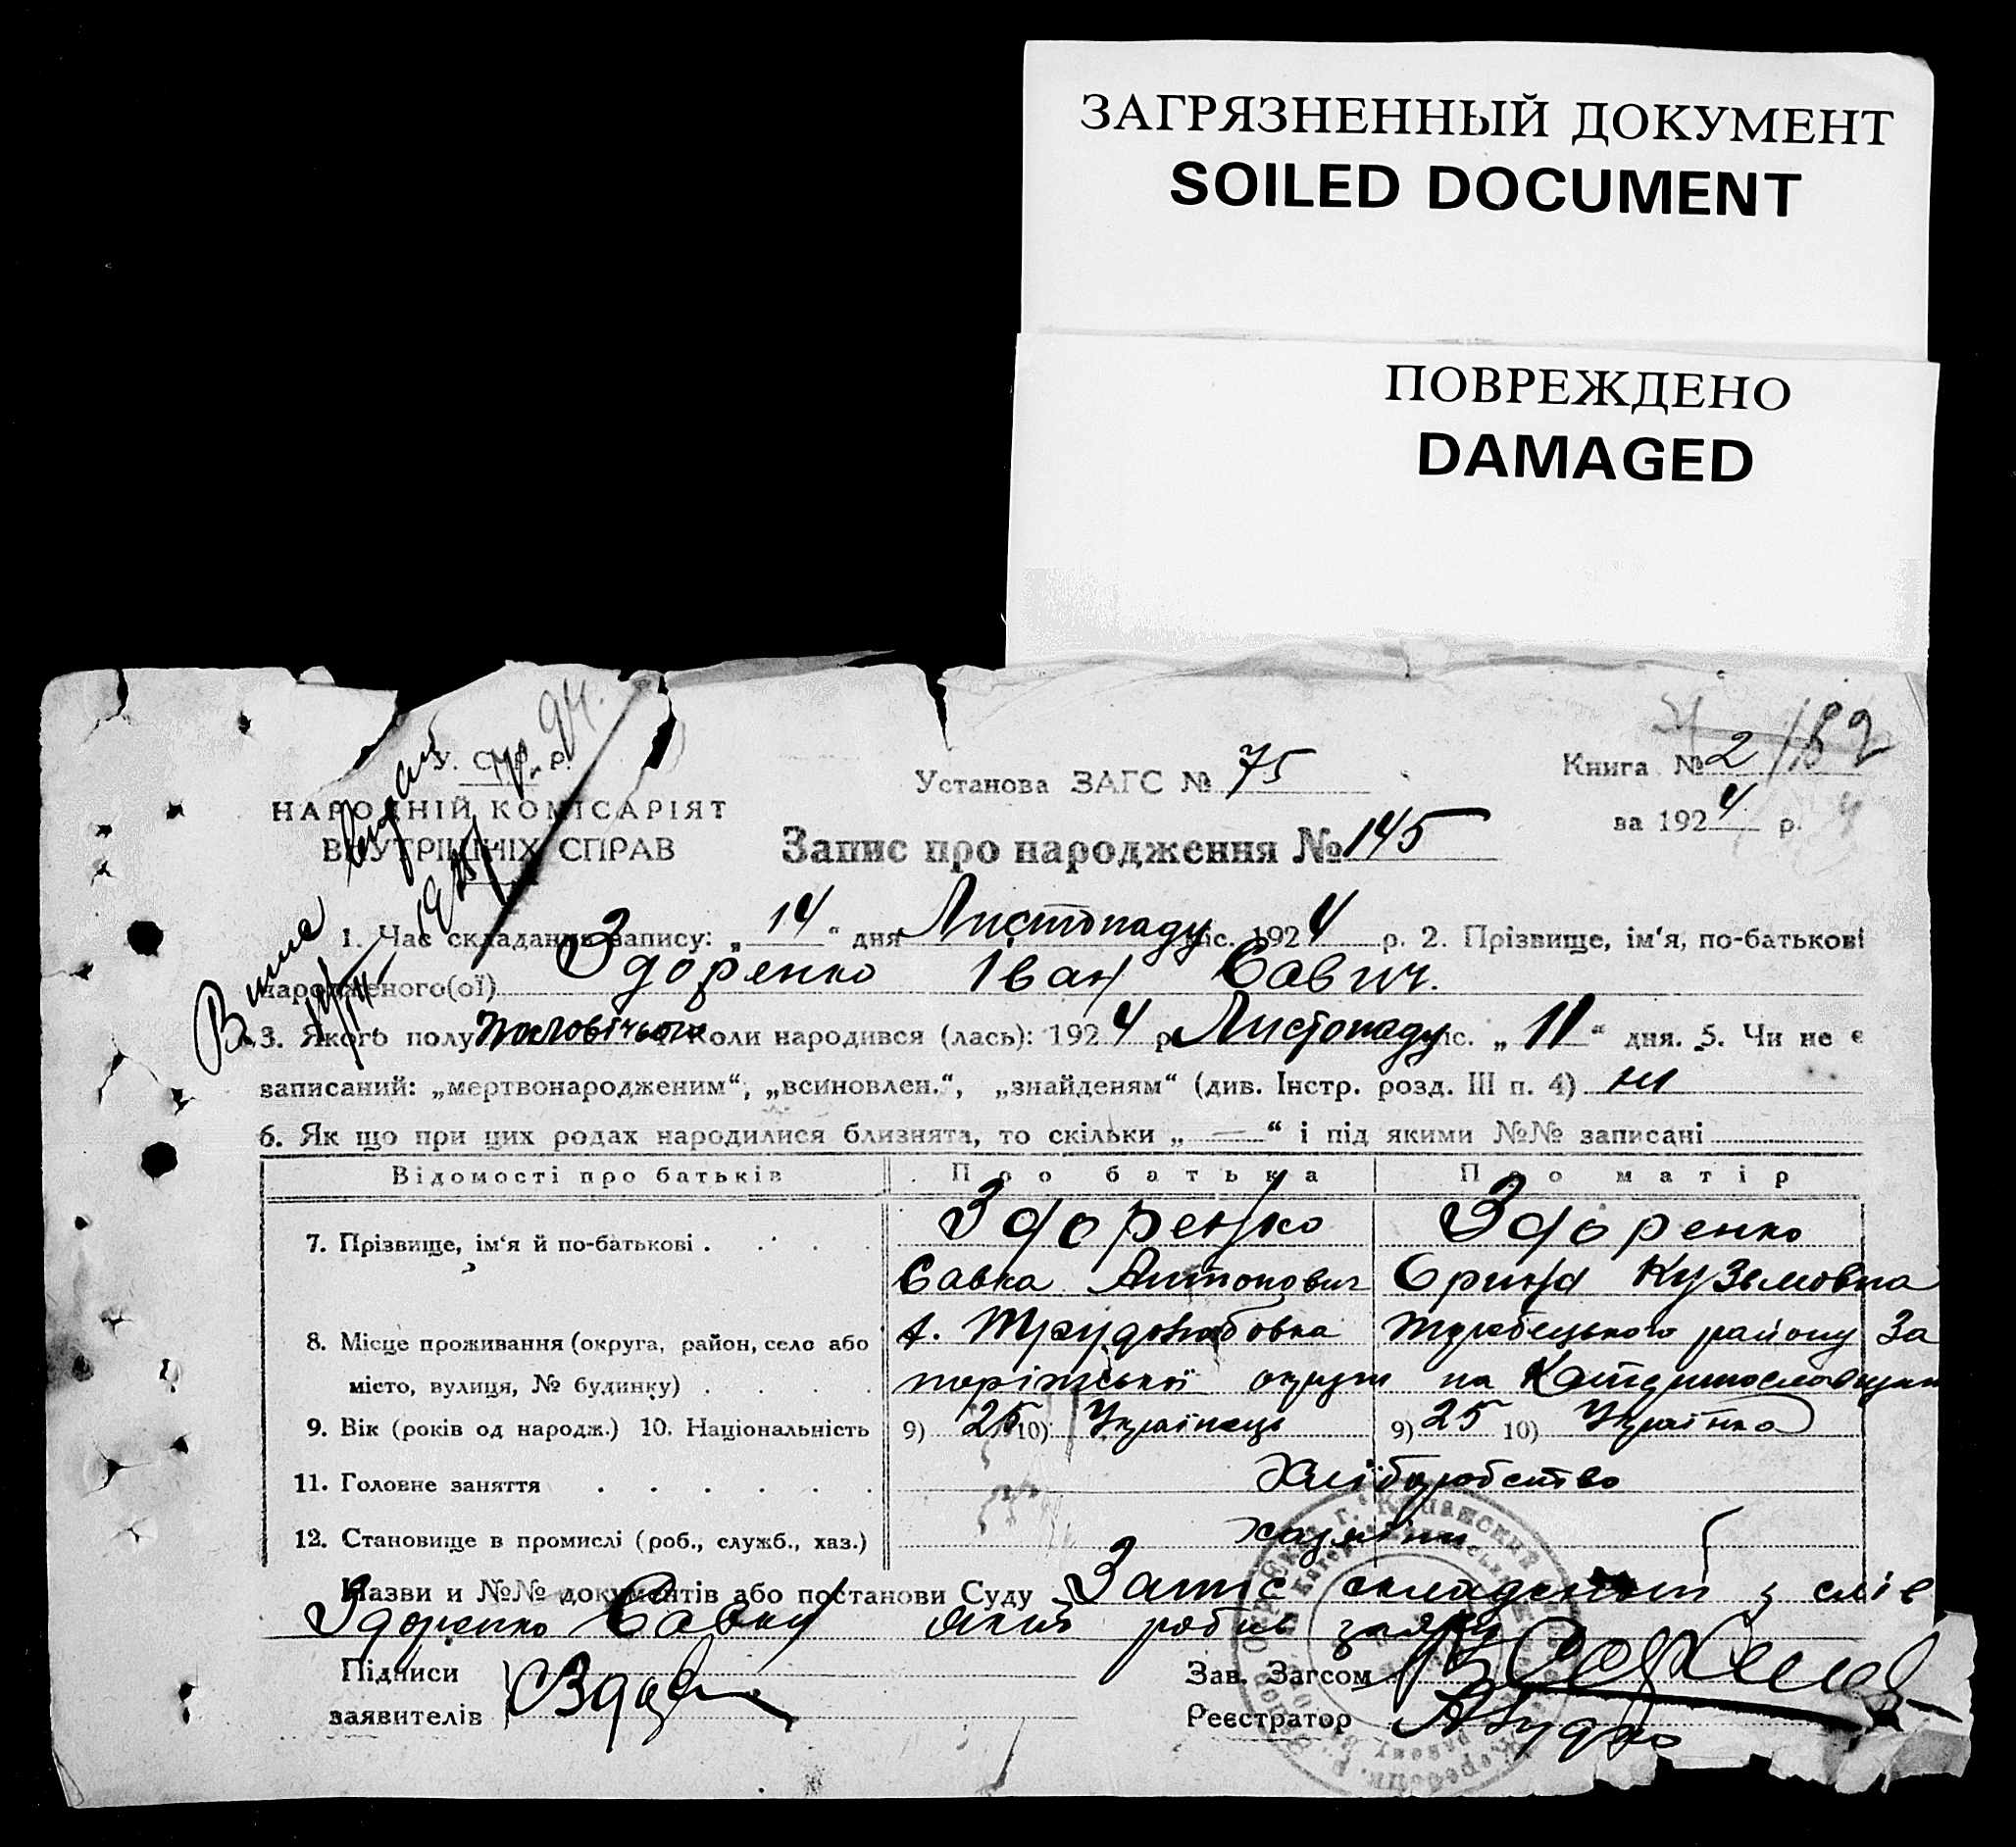 ЗАГРЯЗНЕННЫЙ ДОКУМЕНТ
SOILED DOCUMENT
ПОВРЕЖДЕНО
DAMAGED
У. С. Р. Р.
НАРОДНІЙ КОМІСАРІЯТ
ВНУТРІШНІХ СПРАВ
Установа ЗАГС № 75
Книга № 2
за 1924 р.
Запис про народження № 145
1. Час складання запису: „14“ дня Листопаду міс. 1924 р. 2. Прізвище, ім‘я, по-батькові
народженого(ої) Здоренко Іван Савич.
3. Якого полу Чоловічього Коли народився (лась): 1924 р. Листопаду міс. „11“ дня. 5. Чи не є
записаний: „мертвонародженим“, „всиновлен.“, „знайденям“ (див. Інстр. розд. III п. 4) ні
6. Як що при цих родах народилися близнята, то скільки „—“ і під якими №№ записані
Відомості про батьків Про батька Про матір
7. Прізвище, ім‘я й по-батькові . . . . Здоренко Здоренко
Савка Антонович Орина Кузьмовна
8. Місце проживання (округа, район, село або
місто, вулиця, № будинку) . . . . порізької округи на Катеринославщині
району За
9. Вік (років од народж.) 10. Національність 9) 25 10) Українець 9) 25 10) Українка
11. Головне заняття . . . . . . Хліборобство
12. Становище в промислі (роб., служб., хаз.) хазяїни
Назви и №№ документів або постанови Суду Запис складений з слів
Здоренко Савки який робив заяву
Підписи
заявителів
Зав. Загсом
Реєстратор